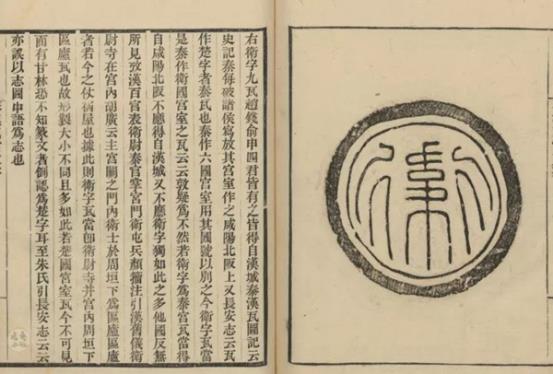 衛
右衛字九瓦趙錢俞申四君皆有之皆得自漢城秦漢瓦圖記云
史記秦每破諸侯寫放其宮室作之咸陽北阪上又長安志云瓦
作楚字者秦瓦也秦作六國宮室用其國號以別之今衛字瓦當
是秦作衛國宮室之瓦云云敦疑爲不然若衛字爲秦宮瓦當得
自咸陽北阪不應得自漢城又不應衛字獨如此之多他國反無
所見攷漢百官表衛尉秦官掌宮門衛屯兵顏籀注引漢舊儀衛
尉寺在宮內胡廣云主宮闕之門內衛士於周垣下爲區廬區廬
者若今之仗宿屋也據此則衛字瓦當卽衛尉寺并宮內周垣下
區廬瓦也故形製大小不同且多如此若楚國宮室瓦今不可見
而有甘林恐不知篆文者倒認爲楚字耳至朱氏引長安志云云
亦誤以志圖中語爲志也